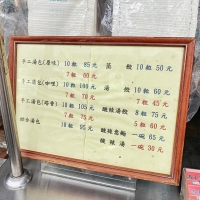 手工湯包(原味) 10粒 95元
7粒 60元
手工湯包(咖哩) 10粒 100元
7粒 70元
手工湯包(塔香) 10粒 105元
7粒 75元
10粒 95元
蒸餃 10粒 50元
湯餃 10粒 60元
7粒 45元
酸辣湯餃 8粒 75元
5粒 60元
酸辣 一碗 65元
酸辣湯 一碗 30元